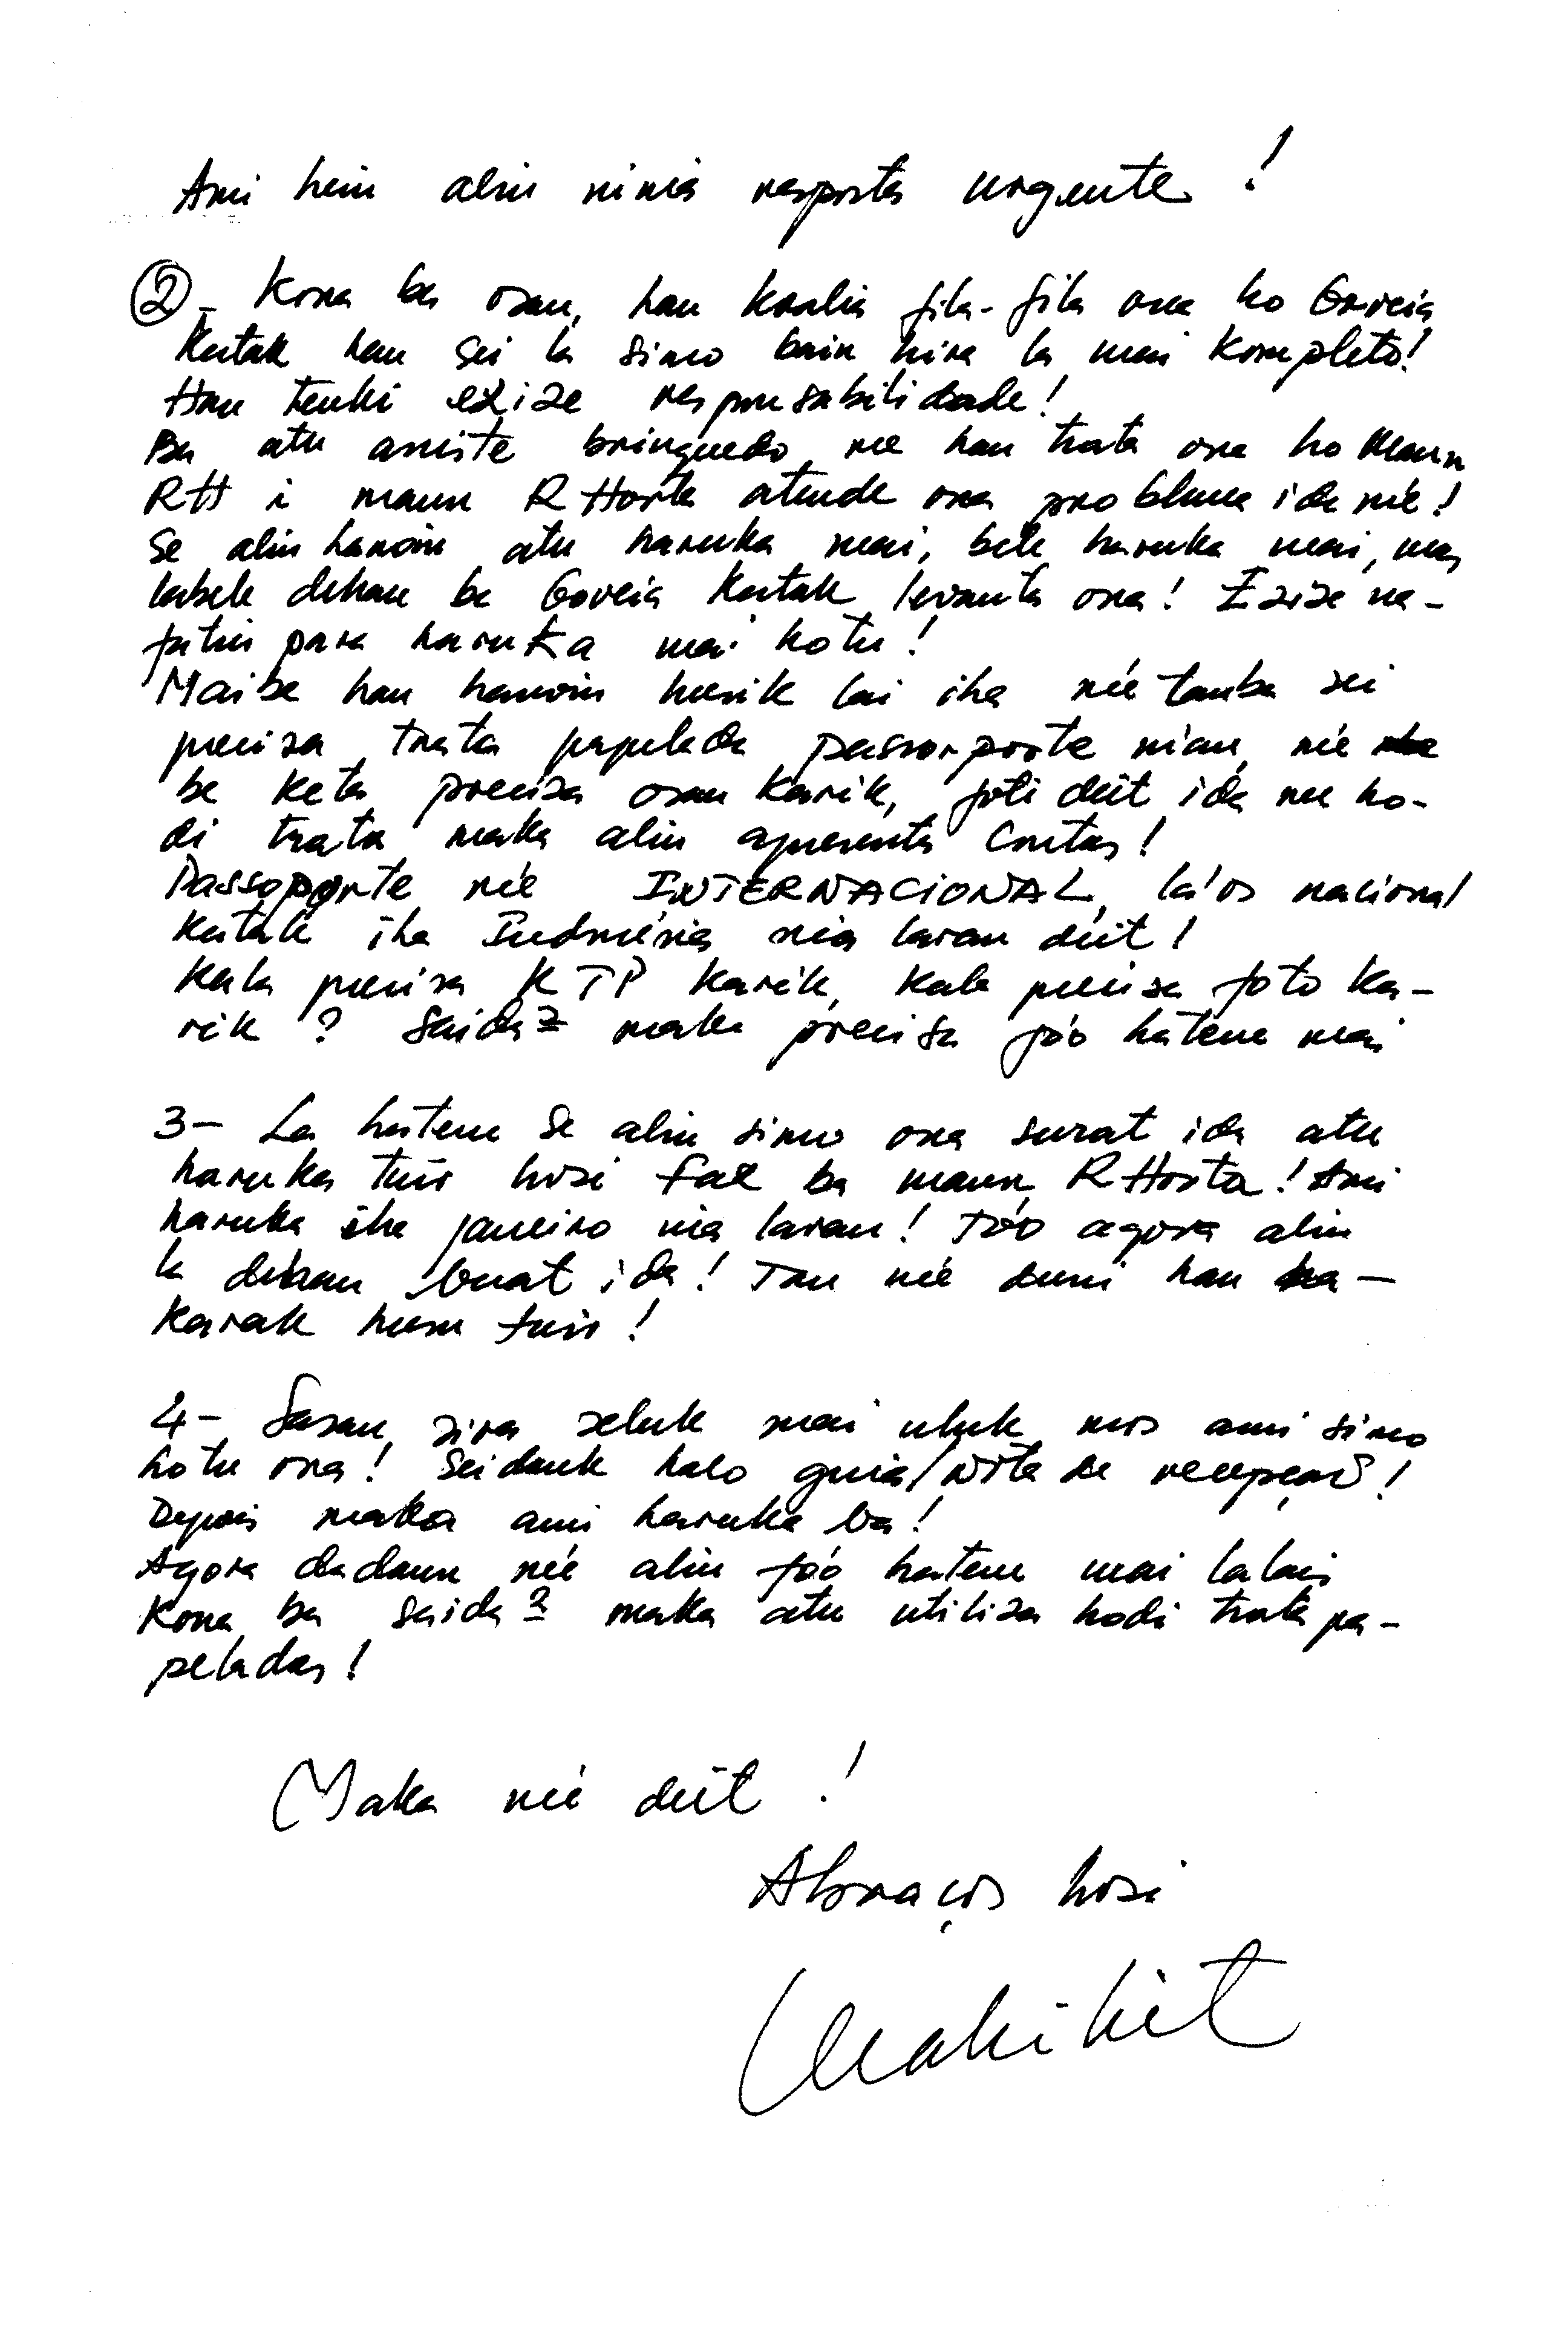 Ami hein alin ninia resposta urgente!
② - Kona ba osan, hau koalia fila-fila ona ho Goveia
Katak hau sei la simo bain hira la mai kompleto!
Hau tenki exize responsabilidade!
Ba atu assiste brinquedo nee hau trata ona ho Maun
RH i maun R Horta atende ona problema ida ne'e!
Se alin hanoin atu haruka mai, bele haruka mai, mas
labele dehan ba Goveia Katak levanta ona! Exize na-
fatin para haruka mai hotu!
Maibe hau hanoin husik lai iha ne'e tanba sei
precisa trata papelada passorporte nian, ne'e
be keta precisa osan karik, foti deit ida nee ho-
di trata maka alin apresenta Contas!
Passoporte ne'e INTERNACIONAL, la'os nacional
Katak iha Indonésia nia laran deit!
Kala precisa KTP karik, Kala precisa foto ka-
rik? Saida2 maka precisa fó'o hatene mai
3- La hatene se alin simo ona surat ida atu
haruka tuir hosi fax ba maun R Horta! Ami
haruka iha janeiro nia laran! To'o agora alin
la dehan buat ida! Tan ne'e duni hau ha-
karak husu tuir!
4- Sasan sira seluk mai uluk nos ami simo
hotu ona! Seidauk halo guia/Nota de recepção!
Depois maka ami haruka ba!
Agora dadaun ne'e alin fó'o hatene mai lalais
Kona ba saida2 maka atu utiliza hodi trata pa-
peladas!
Maka ne'e deit!
Abraços hosi